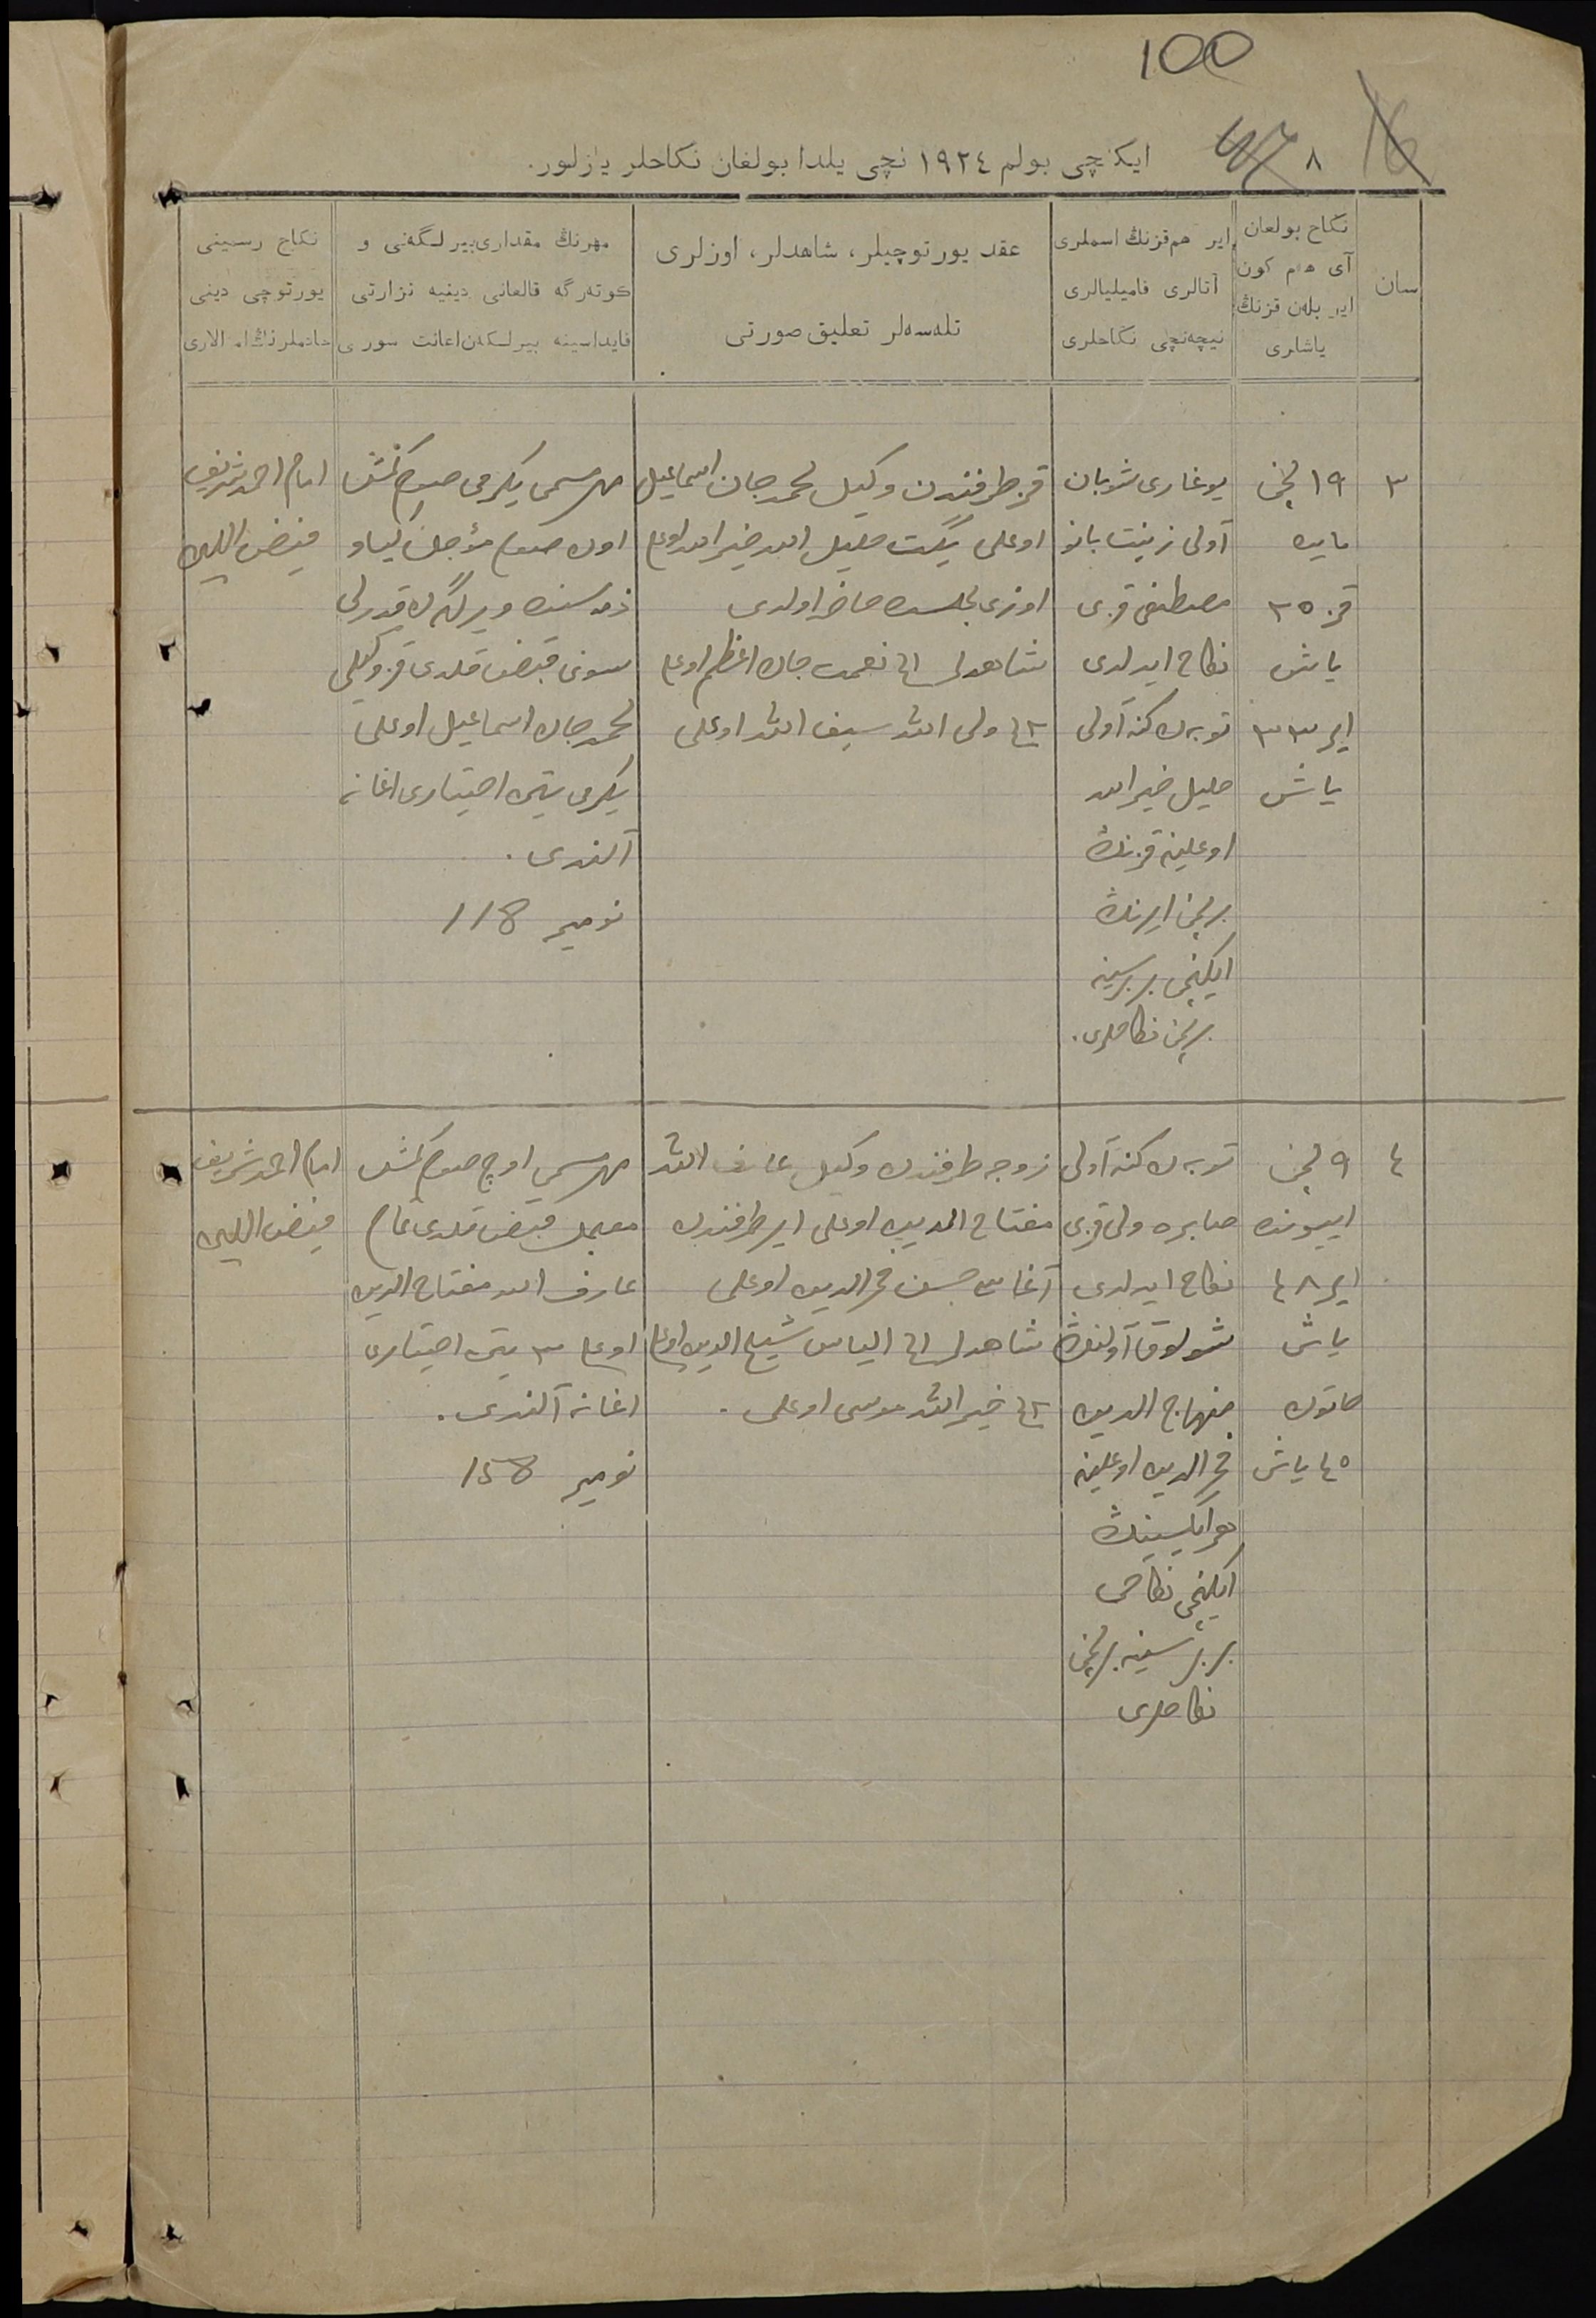 100
٨
ایكنچی بولم ١٩٢٤ نچی یلدا بولغان نكاحلر یازلور.
سان
نكاح بولغان
آی هم كون
ایر بلەن قزنڭ
یاشلری
ایر هم قزنڭ اسملری
آتالری فامیلیالری
نیچەنچی نكاحلری
عقد یورتوچیلر، شاهدلر، اوزلری
تلەسەلر تعلیق صورتی
مهرنڭ مقداری بیرلگەنی و
كوتەرگە قالغانی دینیه نزارتی
فایداسینه بیرلگەن اعانت سوری
نكاح رسمینی
یورتوچی دینی
خادملرنڭ امضالاری
٣
١٩ نچی
مایده
قز ٢٥
یاش
ایر ٣٣
یاش
یوغاری شوبان
آولی زینت بانو
مصطفی قزی
نكاح ایدلدی
توبەن كنە آولی
خلیل خیرالله
اوغلینه قزنڭ
برنچی ایرنڭ
ایكنچی بربرسینه
برنچی نكاحلری.
قز طرفندن وكیل محمدجان اسماعیل
اوغلی یگت خلیل الله خیرالله اوغلی
اوزی مجلسده حاضر اولدی
شاهدلر ١نچی نعمت جان اعظم اوغلی
٢نچی ولی الله سیف الله اوغلی
مهر مسمی یكرمی صوم كمش
اون صوم مؤجل كیاو
ذمه سنده ویرلگەن قدرلی
سونی قبض قلدی قز وكیلی
محمدجان اسماعیل اوغلی
یكرمی تین اختیاری اعانه
آلندی.
نومیر 118
امام احمد شریف
فیض اللهی
٤
٩ نچی
اییونده
ایر ٤٨
یاش
خاتون
٤٥ یاش
توبەن كنە آولی
صابره ولی قزی
نكاح ایدلدی
شولوق آولنڭ
منهاج الدین
فخرالدین اوغلینه
هر ایكیسینڭ
ایكنچی نكاحی
بربرسینه برنچی
نكاحلری
زوجه طرفندن وكیل عارف الله
مفتاح الدین اوغلی ایر طرفندن
آغاسی حسن فخرالدین اوغلی
شاهدلر ١نچی الیاس شیخ الدین اوغلی
٢نچی خیرالله موسی اوغلی.
مهر مسمی اوچ صوم كمش
معجل قبض قلدی
عارف الله مفتاح الدین
اوغلی ٣٠ تین اختیاری
اعانه آلندی.
نومیر 158
امام احمد شریف
فیض اللهی